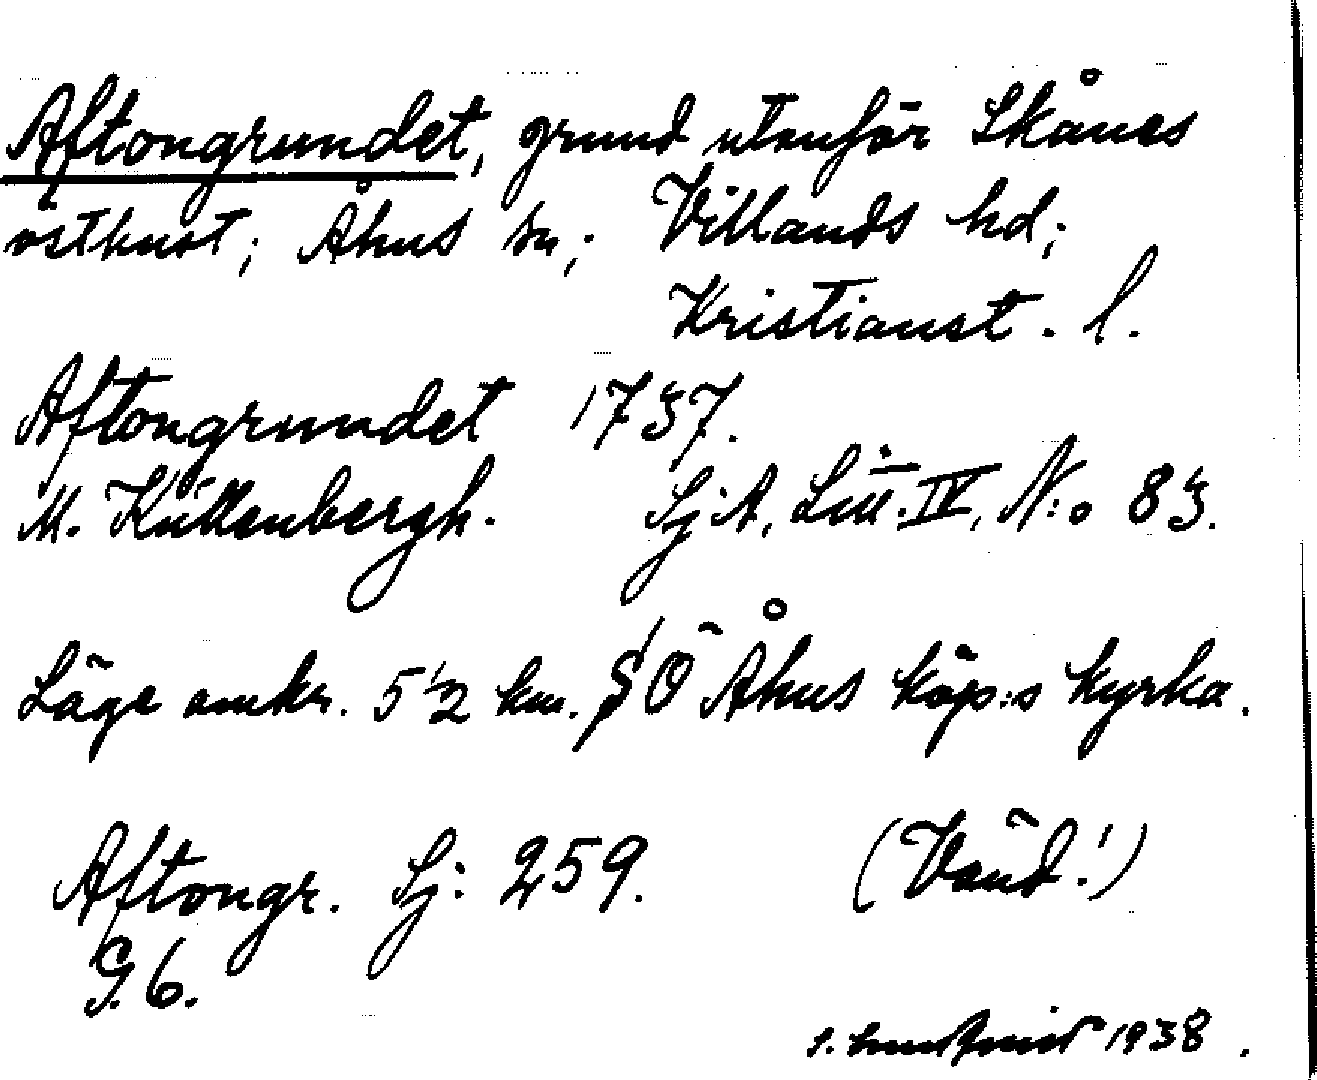 Aftongrundet, grund utanför Skånes
ostkust; Åhus sn; Villands hd;
Kristianst. l.
Aftongrundet 1737.
M. Küttenbergh. Sj.A, Litt. IV, N:o 83.
Läge omkr. 5 1/2 km. SÖ Åhus köp:s kyrka.
Aftongr. Sj: 259. (Vänd!)
G. 6.
1938.